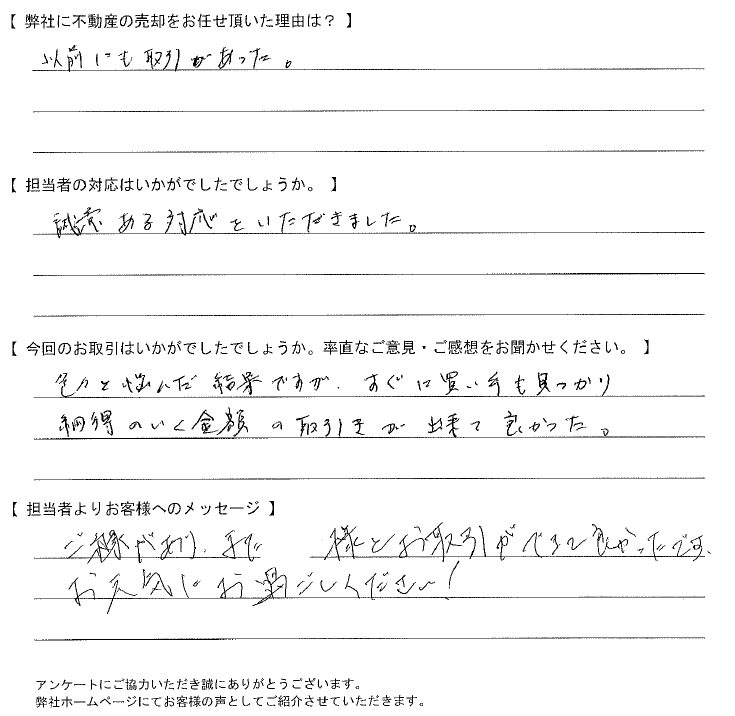 【 弊社に不動産の売却をお任せ頂いた理由は? 】
以前にも取引があった。
【 担当者の対応はいかがでしたでしょうか。 】
誠意ある対応をいただきました。
【 今回のお取引はいかがでしたでしょうか。率直なご意見・ご感想をお聞かせください。 】
色々と悩んだ結果ですが、すぐに買い手も見つかり
納得のいく金額の取引きが出来て良かった。
【 担当者よりお客様へのメッセージ 】
ご縁があり、 様とお取引ができて良かったです。
お元気にお過ごしください!
アンケートにご協力いただき誠にありがとうございます。
弊社ホームページにてお客様の声としてご紹介させていただきます。